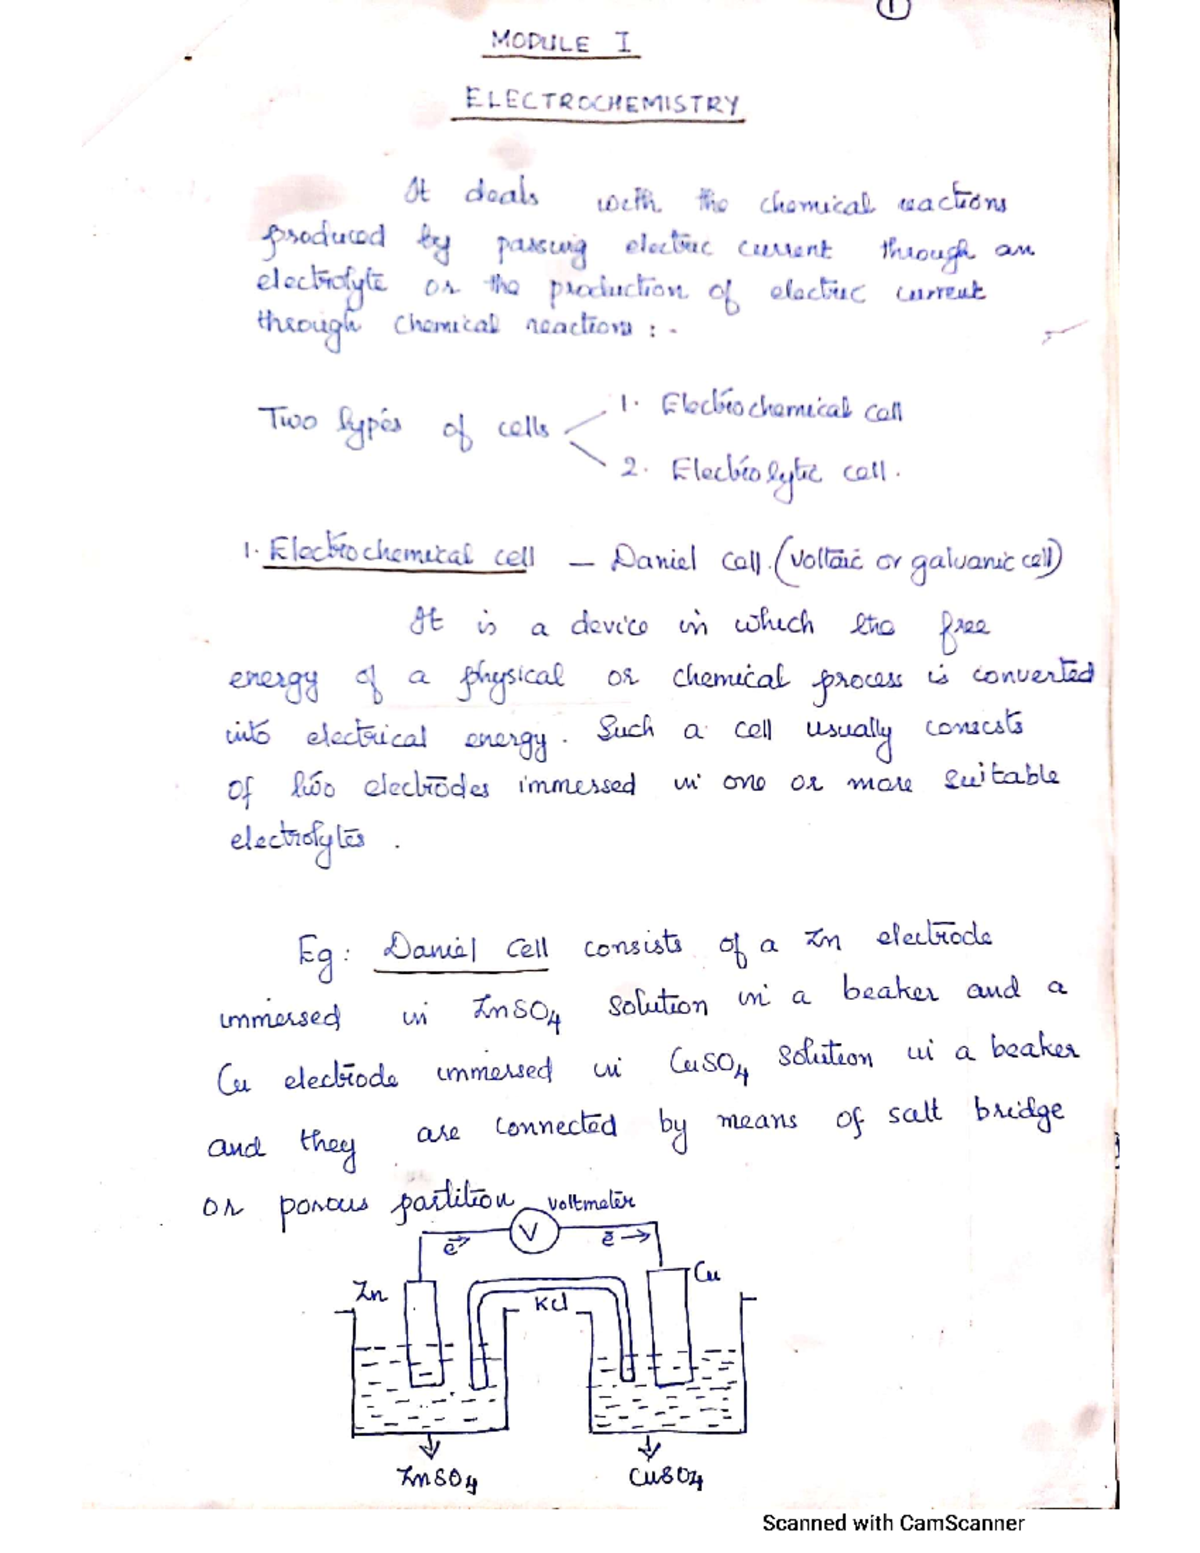 1
MODULE I
ELECTROCHEMISTRY
It deals with the chemical reactions
produced by passing electric current through an
electrolyte or the production of electric current
through chemical reactions : -
Two types of cells
1. Electrochemical cell
2. Electrolytic cell.
1. Electrochemical cell — Daniel cell. (voltaic or galvanic cell)
It is a device in which the free
energy of a physical or chemical process is converted
into electrical energy. Such a cell usually consists
of two electrodes immersed in one or more suitable
electrolytes.
Eg: Daniel cell consists of a Zn electrode
immersed in ZnSO4 solution in a beaker and a
Cu electrode immersed in CuSO4 solution in a beaker
and they are connected by means of salt bridge
or porous partition
voltmeter
e→ V ē→
Zn Cu
KCl
ZnSO4 CuSO4
Scanned with CamScanner